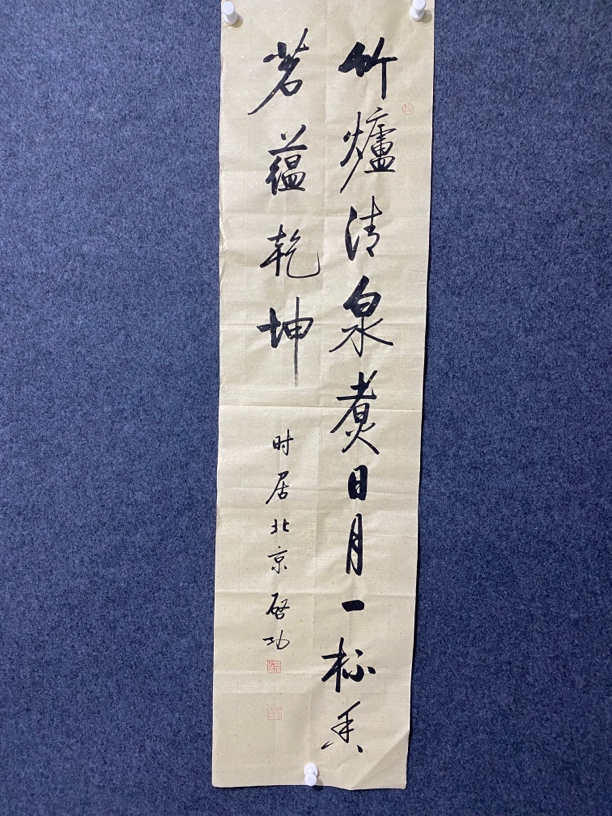 竹爐清泉煮日月一杯香
茗蕴乾坤
时居北京啓功